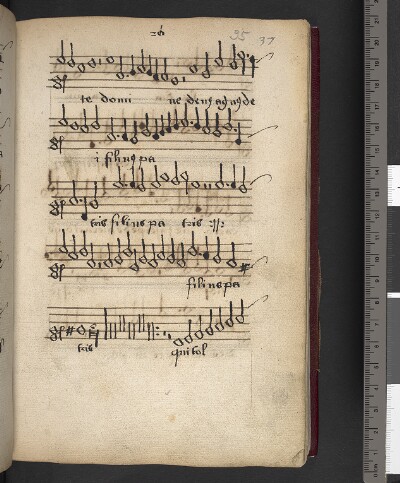 35 37
te domi ne deus agnus de
i filius pa
tris filius pa tris :||:
filius pa
tris qui tol